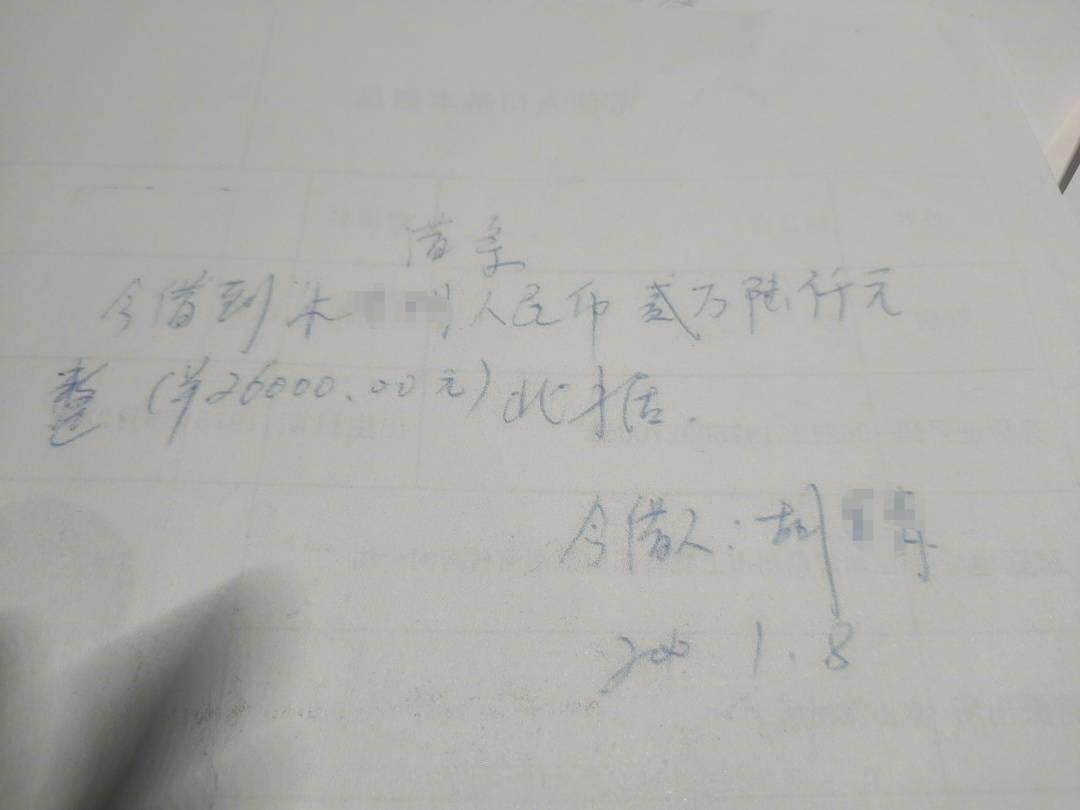 借条
今借到朱 人民币贰万陆仟元
整.(¥26000.00元)此才居.
今借人:胡
1.8